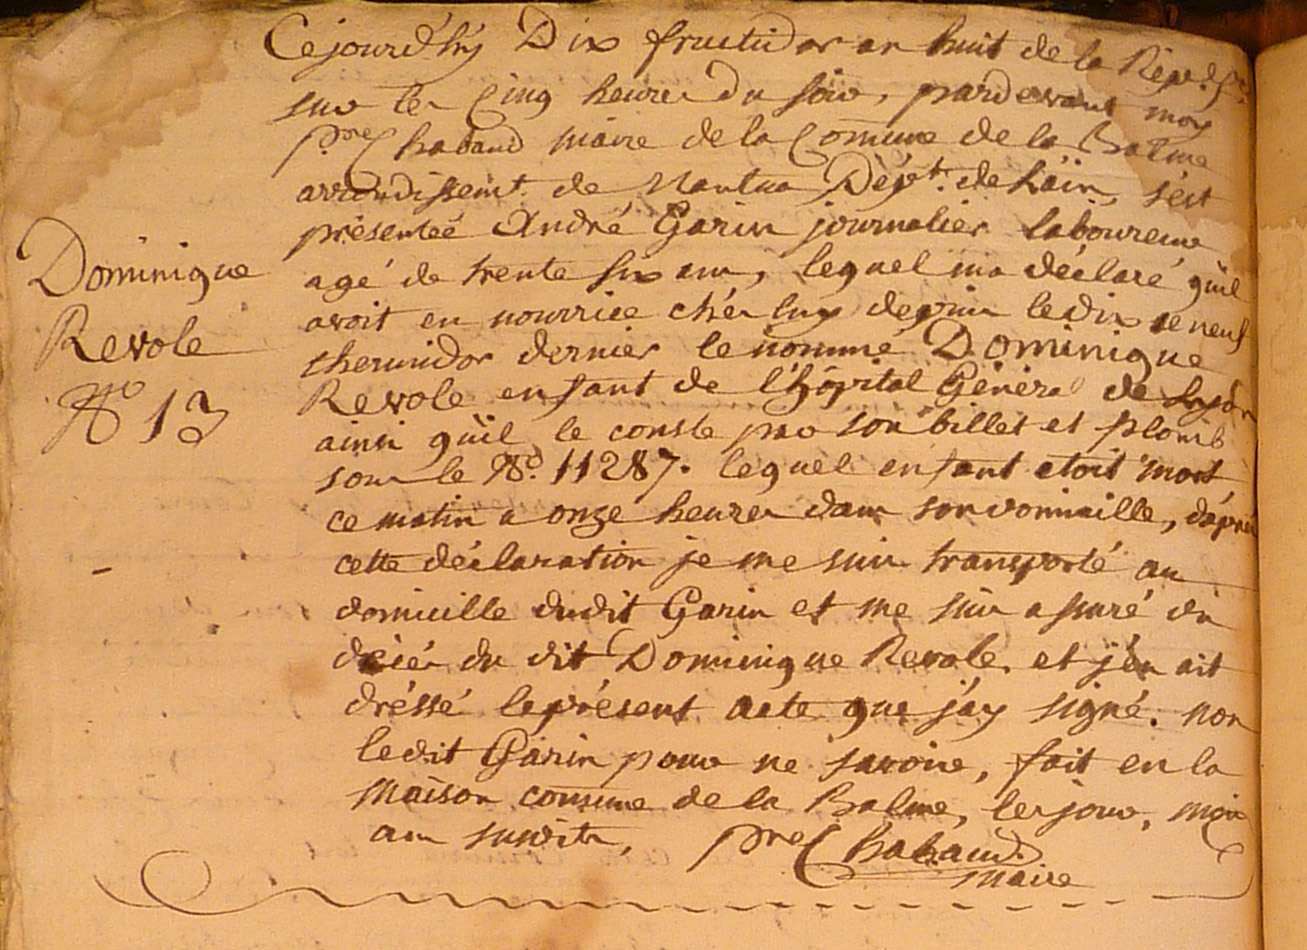 Cejourd'huy Dix fructidor an huit de la Répq.e fse.
sur les Cinq heures Du soir, pardevant moy
pre. Chabaud maire de la Comune de la Balme
arrondissemt. de Nantua Dépt. de L'ain, s'est
présenteé André Garin journalier laboureur
agé de trente six ans, lequel ma déclaré qu'il
avoit en nourrice chés luy depuis le dix neuf
thermidor dernier le nommé Dominique
Revole enfant de l'hôpital Généra de Lyon
ainsi qu'il le conste par son billet et plomb
sous le No. 11287. lequel enfant etoit mort
ce matin a onze heures dans son domicille, d'après
cette déclaration je me suis transporté au
domicille dudit Garin et me suis assuré du
décés du dit Dominique Revole. et j'en ait
dréssé le présent acte que j'ay signé. non
ledit Garin pour ne savoir, fait en la
maison comune de la Balme, les jour, mois
an susdits, pre Chabaud.
maire
Dominique
Revole
No 13